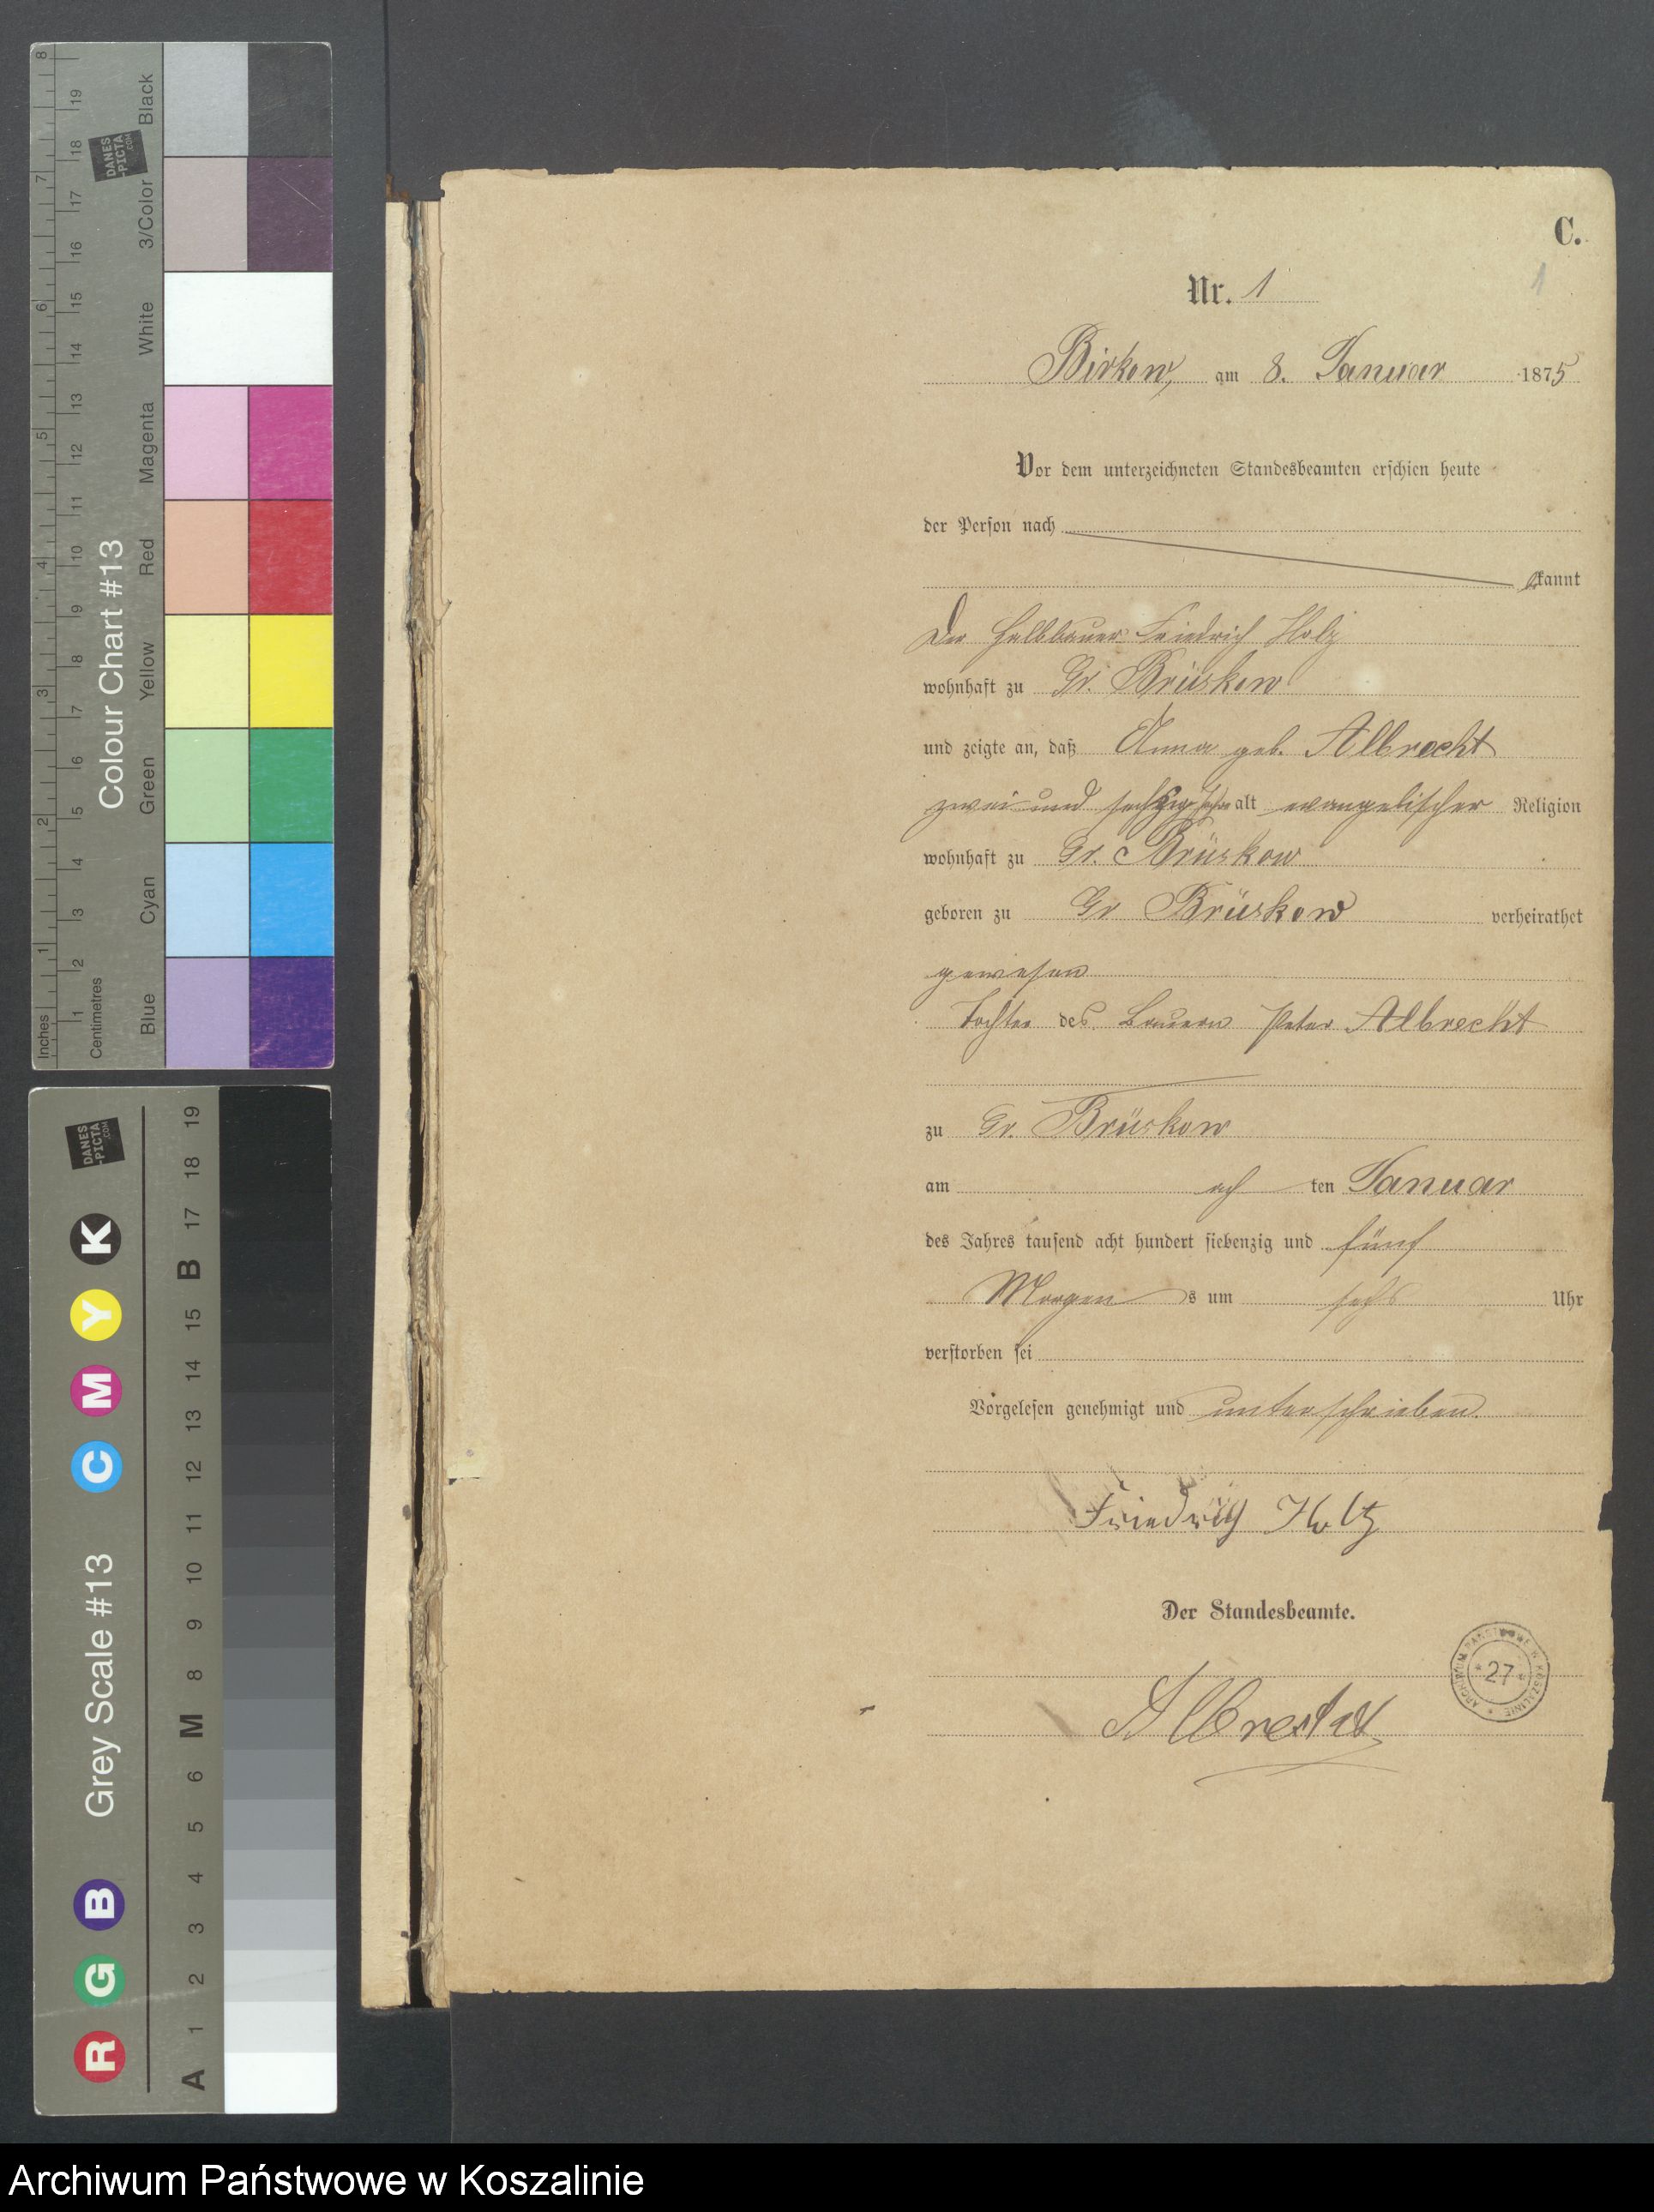 Inches
Centimetres
1 2 3 4 5 6 7 8
1 2 3 4 5 6 7 8 9 10 11 12 13 14 15 16 17 18 19
Colour Chart #13
Blue Cyan Green Yellow Red Magenta White 3/Color Black
DANES
-PICTA
.COM
Grey Scale #13
R G B C M Y K
DANES
-PICTA
.COM
A 1 2 3 4 5 6 M 8 9 10 11 12 13 14 15 B 17 18 19
C.
1
Nr. 1
Birkow, am 8. Januar 1875
Vor dem unterzeichneten Standesbeamten erschien heute
der Person nach
kannt
Der Halbbauer Friedrich Holz
wohnhaft zu Gr. Brüskow
und zeigte an, daß Anna geb. Albrecht
zwei und sechzig Jahre alt evangelischer Religion
wohnhaft zu Gr. Brüskow
geboren zu Gr Brüskow verheirathet
gewesen
Tochter des Bauern Peter Albrecht
zu Gr. Brüskow
am ach ten Januar
des Jahres tausend acht hundert siebenzig und fünf
Morgen s um sechs Uhr
verstorben sei
Vorgelesen genehmigt und unterschrieben.
Friedrich Holtz
Der Standesbeamte.
Albrecht
ARCHIWUM PAŃSTWOWE W KOSZALINIE
* 27 *
Archiwum Państwowe w Koszalinie